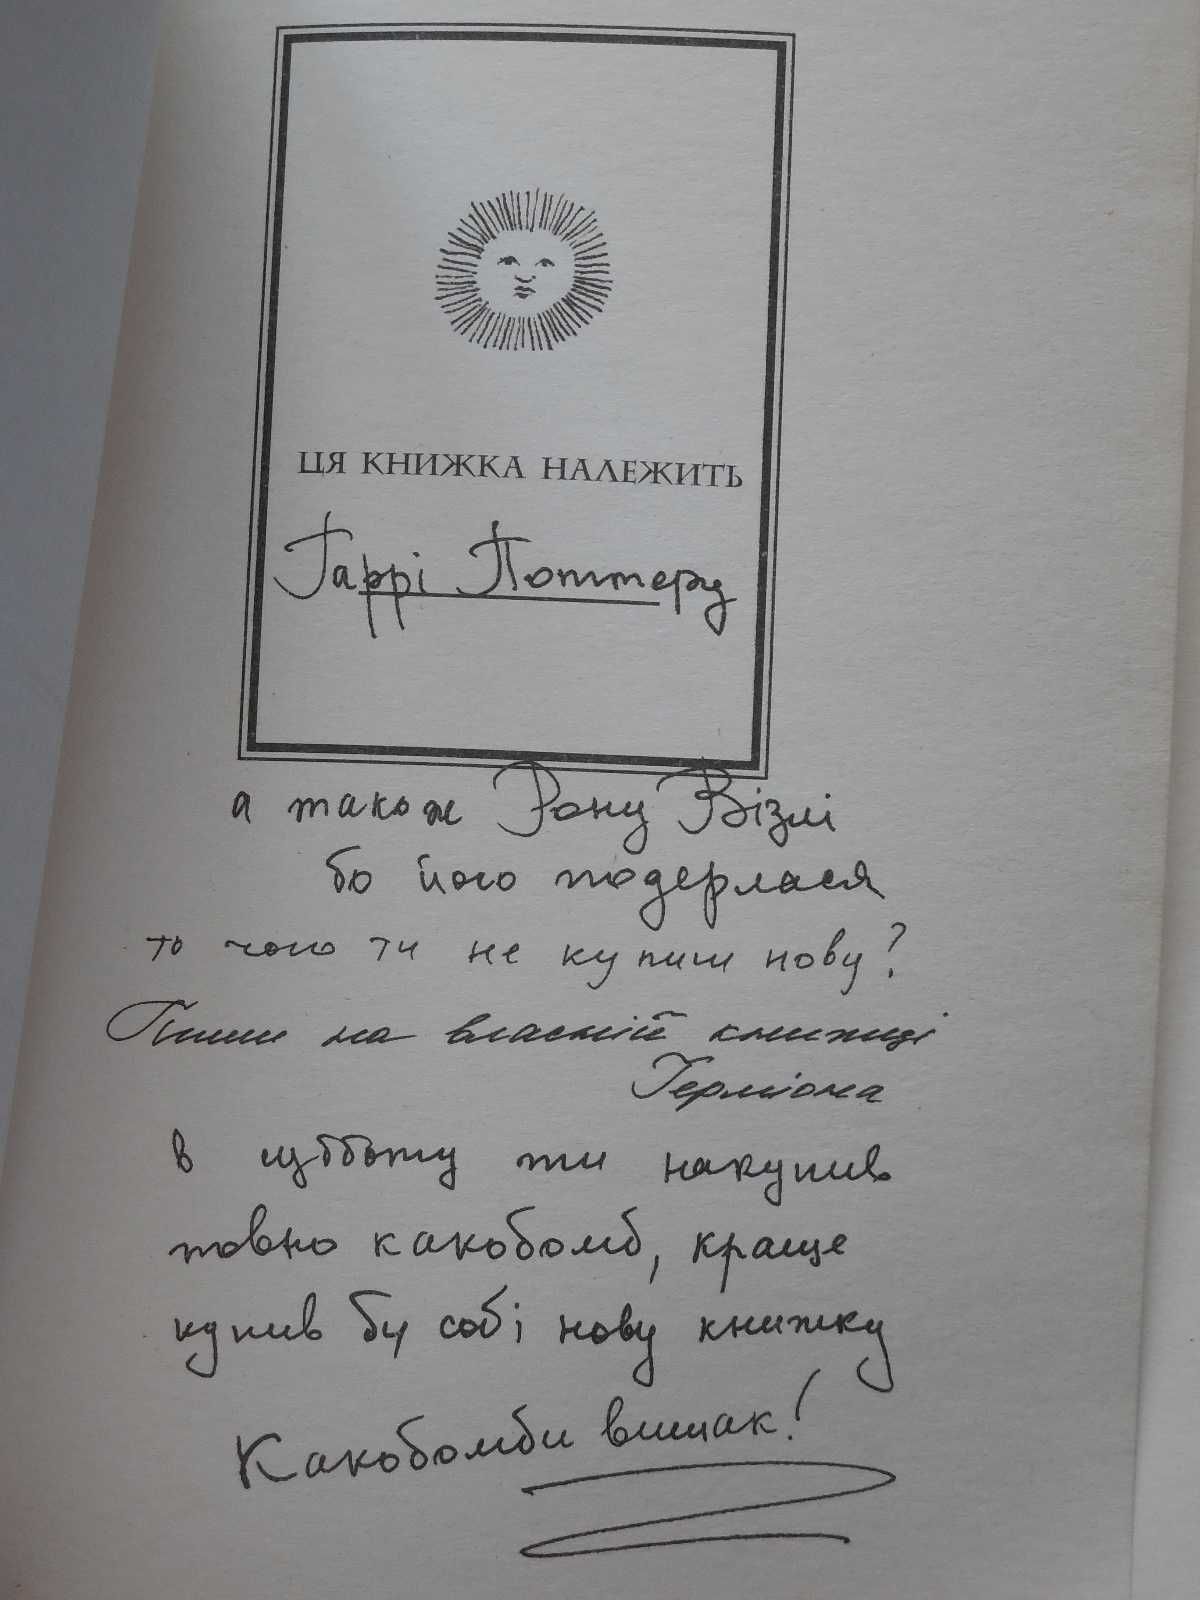 ЦЯ КНИЖКА НАЛЕЖИТЬ
Гаррі Поттеру
а також Рону Візлі
бо його подерлася
то чого ти не купиш нову?
Пиши на власній книжці
Герміона
в субботу ти накупив
повно какобомб, краще
купив би собі нову книжку
Какобомби вишак!